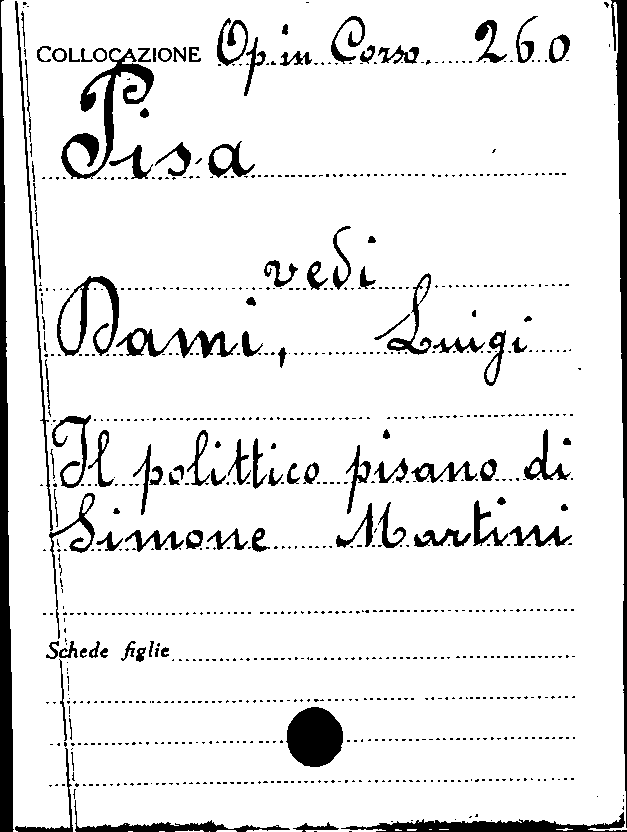 COLLOCAZIONE Op. in Corso. 260
Pisa
vedi
Dami, Luigi
Il polittico pisano di
Simone Martini
Schede figlie